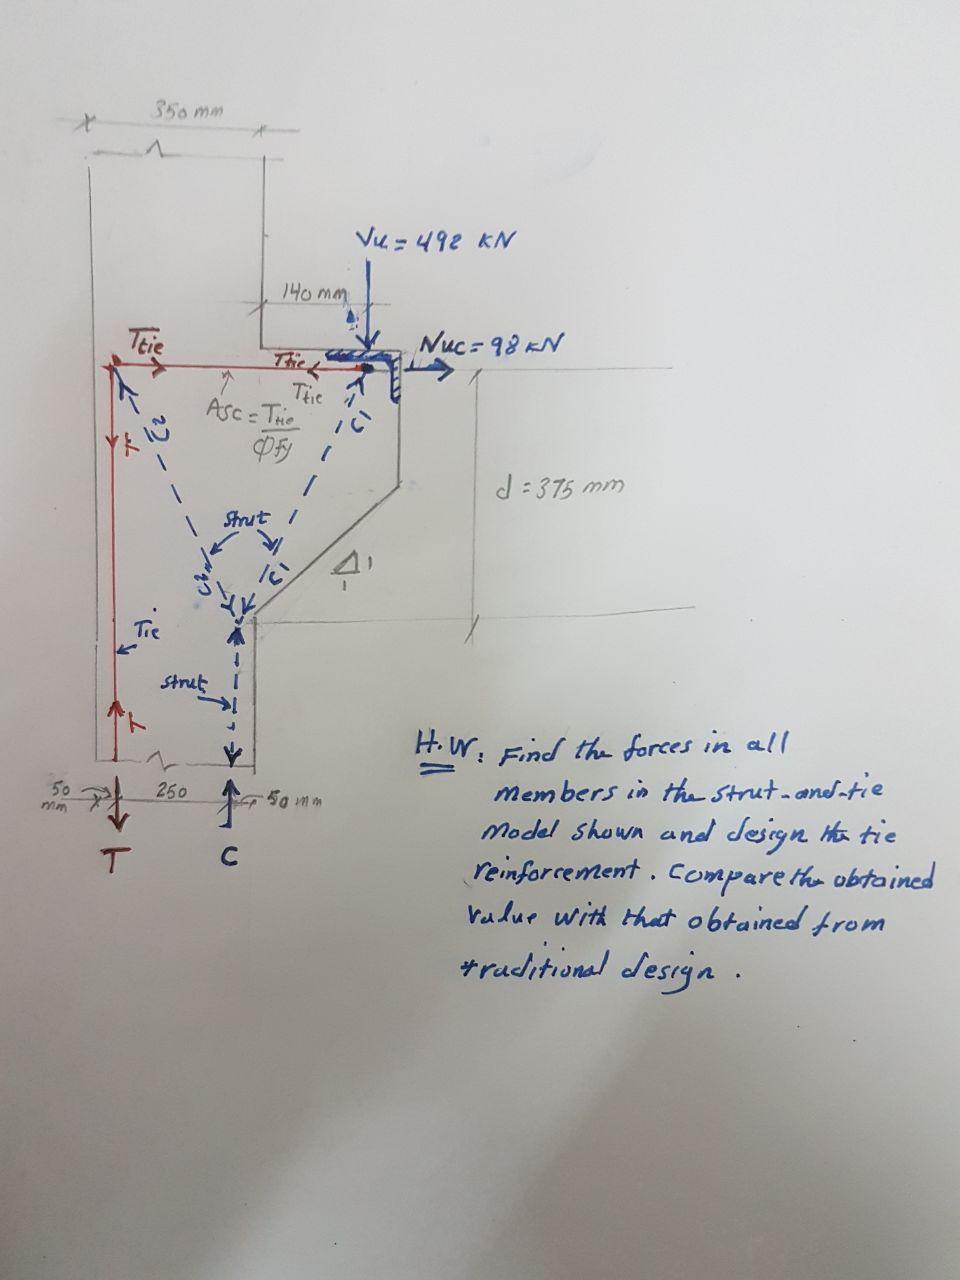 350 mm
Vu = 492 KN
140 mm
Ttie
Ttie
Nuc = 98 KN
Ttie
Asc = Ttie
φfy
C1
C2
T
d = 375 mm
strut
C2
C1
1
1
Tie
strut
T
50
mm
250
50 mm
T
C
H.W: Find the forces in all
members in the strut-and-tie
model shown and design the tie
reinforcement. Compare the obtained
value with that obtained from
traditional design.